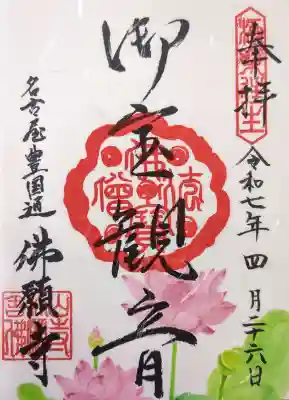 奉拝
令和七年四月二十六日
御宝観音
名古屋豊国通
佛願寺